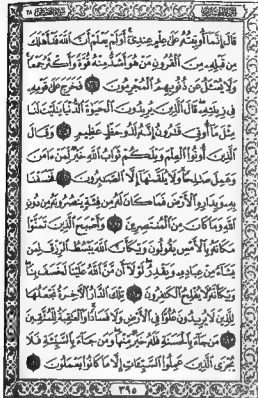 قَالَ إِنَّمَا أُوتِيتُهُ عَلَىٰ عِلْمٍ عِندِي أَوَلَمْ يَعْلَمْ أَنَّ اللَّهَ قَدْ أَهْلَكَ
مِن قَبْلِهِ مِنَ الْقُرُونِ مَنْ هُوَ أَشَدُّ مِنْهُ قُوَّةً وَأَكْثَرُ جَمْعًا
وَلَا يُسْأَلُ عَن ذُنُوبِهِمُ الْمُجْرِمُونَ ٧٨ فَخَرَجَ عَلَىٰ قَوْمِهِ
فِي زِينَتِهِ قَالَ الَّذِينَ يُرِيدُونَ الْحَيَاةَ الدُّنْيَا يَا لَيْتَ لَنَا
مِثْلَ مَا أُوتِيَ قَارُونُ إِنَّهُ لَذُو حَظٍّ عَظِيمٍ ٧٩ وَقَالَ
الَّذِينَ أُوتُوا الْعِلْمَ وَيْلَكُمْ ثَوَابُ اللَّهِ خَيْرٌ لِّمَنْ آمَنَ
وَعَمِلَ صَالِحًا وَلَا يُلَقَّاهَا إِلَّا الصَّابِرُونَ ٨٠ فَخَسَفْنَا
بِهِ وَبِدَارِهِ الْأَرْضَ فَمَا كَانَ لَهُ مِن فِئَةٍ يَنصُرُونَهُ مِن دُونِ
اللَّهِ وَمَا كَانَ مِنَ الْمُنتَصِرِينَ ٨١ وَأَصْبَحَ الَّذِينَ تَمَنَّوْا
مَكَانَهُ بِالْأَمْسِ يَقُولُونَ وَيْكَأَنَّ اللَّهَ يَبْسُطُ الرِّزْقَ لِمَن
يَشَاءُ مِنْ عِبَادِهِ وَيَقْدِرُ لَوْلَا أَن مَّنَّ اللَّهُ عَلَيْنَا لَخَسَفَ بِنَا
وَيْكَأَنَّهُ لَا يُفْلِحُ الْكَافِرُونَ ٨٢ تِلْكَ الدَّارُ الْآخِرَةُ نَجْعَلُهَا
لِلَّذِينَ لَا يُرِيدُونَ عُلُوًّا فِي الْأَرْضِ وَلَا فَسَادًا وَالْعَاقِبَةُ لِلْمُتَّقِينَ
٨٣ مَن جَاءَ بِالْحَسَنَةِ فَلَهُ خَيْرٌ مِّنْهَا وَمَن جَاءَ بِالسَّيِّئَةِ فَلَا
يُجْزَى الَّذِينَ عَمِلُوا السَّيِّئَاتِ إِلَّا مَا كَانُوا يَعْمَلُونَ ٨٤
٣٩٥